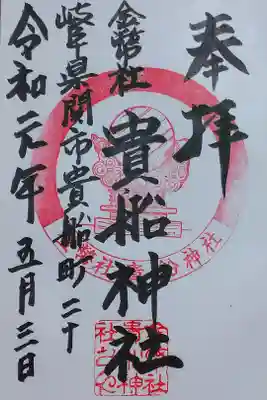 奉拝
金幣社
貴船神社
岐阜県関市貴船町二十
令和元年 五月三日